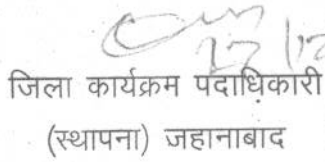 17/12
जिला कार्यक्रम पदाधिकारी
(स्थापना) जहानाबाद